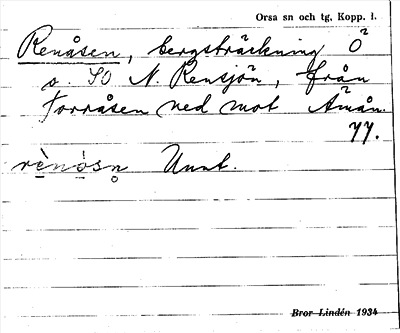 Orsa sn och tg, Kopp. l.
Renåsen, bergsträckning Ö
o. SO N. Rensjön, från
Torråsen ned mot Ånån.
77.
rènósn̥ Uunt.
Bror Lindén 1934